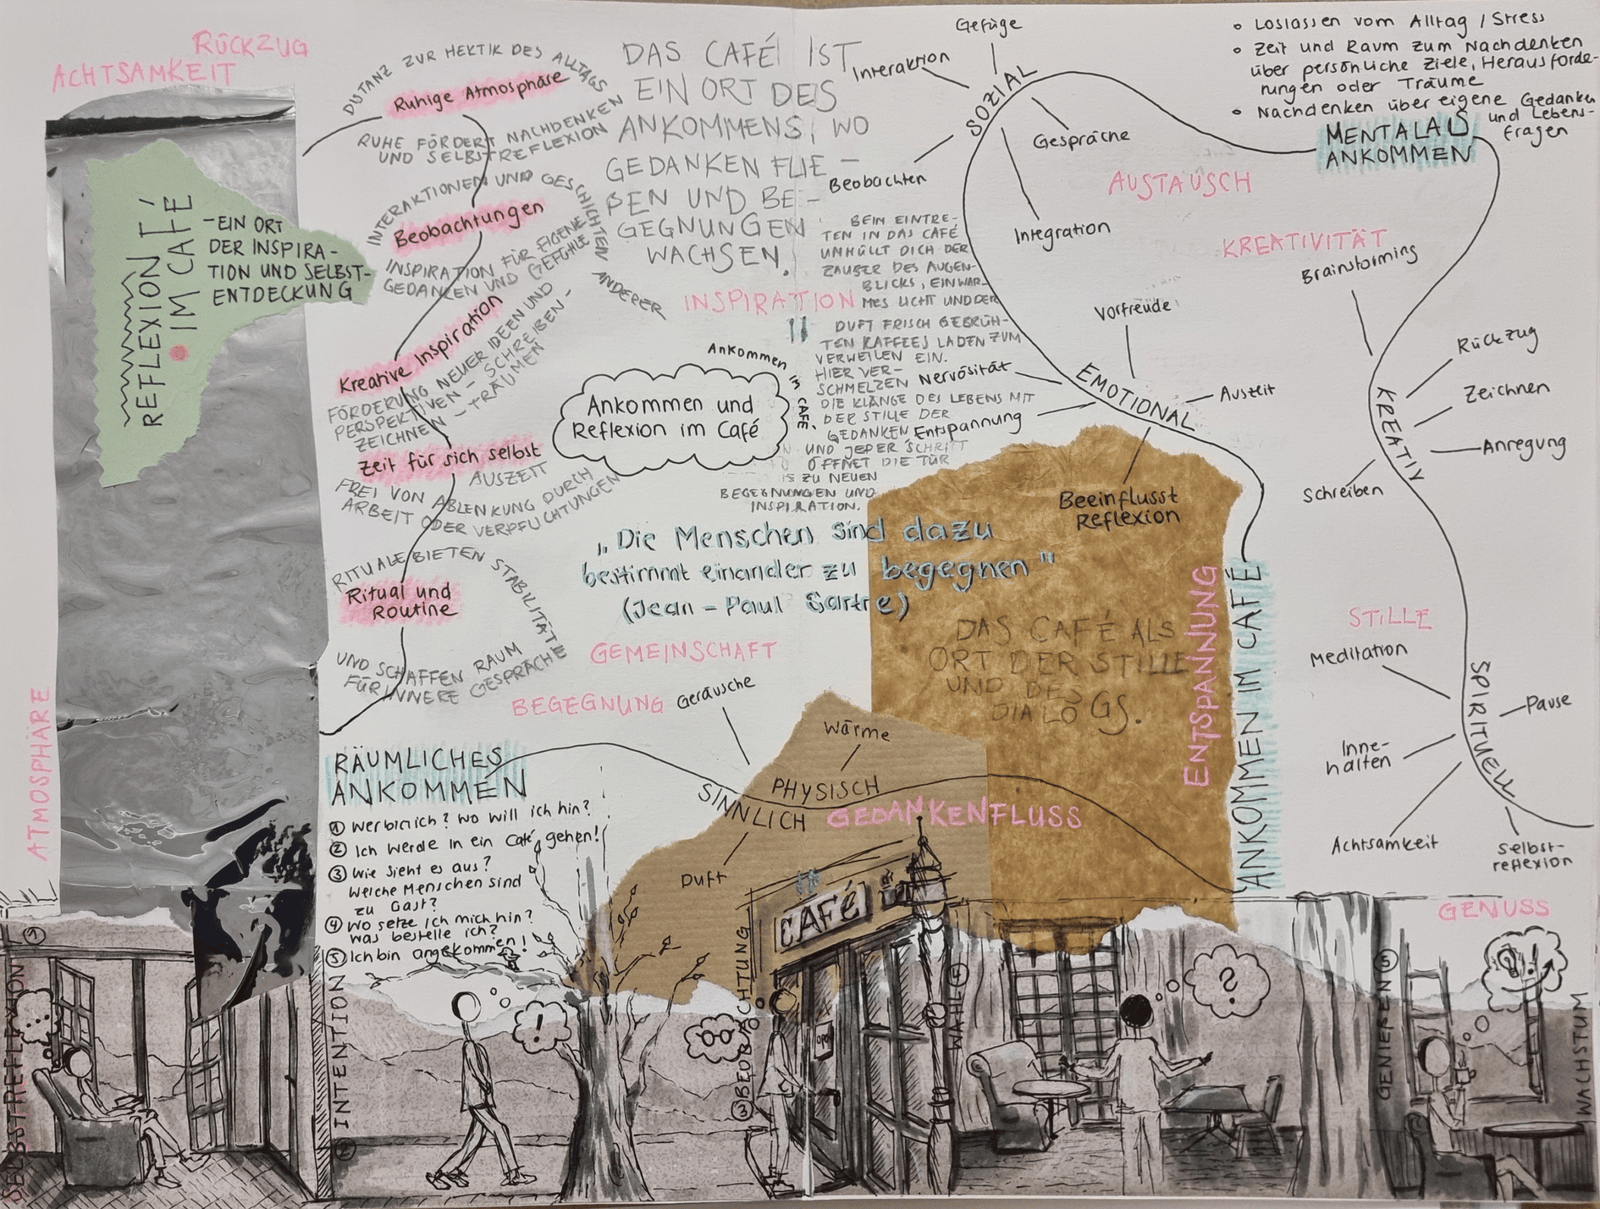 RÜCKZUG
ACHTSAMKEIT
REFLEXION
IM CAFÉ
- EIN ORT
DER INSPIRA-
TION UND SELBST-
ENTDECKUNG
ATMOSPHÄRE
DISTANZ ZUR HEKTIK DES ALLTAGS
Ruhige Atmosphäre
RUHE FÖRDERT NACHDENKEN
UND SELBSTREFLEXION
INTERAKTIONEN UND GESCHICHTEN ANDERER
Beobachtungen
INSPIRATION FÜR EIGENE
GEDANKEN UND GEFÜHLE
Kreative Inspiration
FÖRDERUNG NEUER IDEEN UND
PERSPEKTIVEN - SCHREIBEN -
ZEICHNEN - TRÄUMEN
Zeit für sich selbst
AUSZEIT
FREI VON ABLENKUNG DURCH
ARBEIT ODER VERPFLICHTUNGEN
RITUALE BIETEN STABILITÄT
Ritual und
Routine
UND SCHAFFEN RAUM
FÜR INNERE GESPRÄCHE
DAS CAFÉ IST
EIN ORT DES
ANKOMMENS, WO
GEDANKEN FLIE-
ßEN UND BE-
GEGNUNGEN
WACHSEN.
INSPIRATION
BEIN EINTRE-
TEN IN DAS CAFÉ
UMHÜLLT DICH DER
ZAUBER DES AUGEN-
BLICKS, EIN WAR-
MES LICHT UND DER
DUFT FRISCH GEBRÜH-
TEN KAFFEES LADEN ZUM
VERWEILEN EIN.
HIER VER-
SCHMELZEN
DIE KLÄNGE DES LEBENS MIT
DER STILLE DER
GEDANKEN
UND JEDER SCHRITT
ÖFFNET DIE TÜR
ZU NEUEN
BEGEGNUNGEN UND
INSPIRATION.
Ankommen im CAFÉ.
Ankommen und
Reflexion im Café
„Die Menschen sind dazu
bestimmt einander zu begegnen"
(Jean-Paul Sartre)
GEMEINSCHAFT
BEGEGNUNG
Gefüge
Interaktion
SOZIAL
Gespräche
Beobachten
Integration
AUSTAUSCH
Vorfreude
Nervösität
EMOTIONAL
Auszeit
Entspannung
Beeinflusst
Reflexion
• Loslassen vom Alltag / Stress
• Zeit und Raum zum Nachdenken
über persönliche Ziele, Herausforde-
rungen oder Träume
• Nachdenken über eigene Gedanken
und Lebens-
fragen
MENTALAS
ANKOMMEN
KREATIVITÄT
Brainstorming
Rückzug
Zeichnen
KREATIV
Anregung
Schreiben
STILLE
Meditation
SPIRITUELL
Pause
Inne-
halten
Achtsamkeit
Selbst-
reflexion
GENUSS
DAS CAFÉ ALS
ORT DER STILLE
UND DES
DIALOGS.
ENTSPANNUNG
ANKOMMEN IM CAFÉ
Geräusche
Wärme
PHYSISCH
SINNLICH
GEDANKENFLUSS
Duft
RÄUMLICHES
ANKOMMEN
① Wer bin ich? Wo will ich hin?
② Ich werde in ein Café gehen!
③ Wie sieht es aus?
Welche Menschen sind
zu Gast?
④ Wo setze ich mich hin?
Was bestelle ich?
⑤ Ich bin angekommen!
SELBSTREFLEXION
①
② INTENTION
!
③ BEOBACHTUNG
CAFÉ
OPEN
WAHL ④
?
GENIEßEN ⑤
WACHSTUM